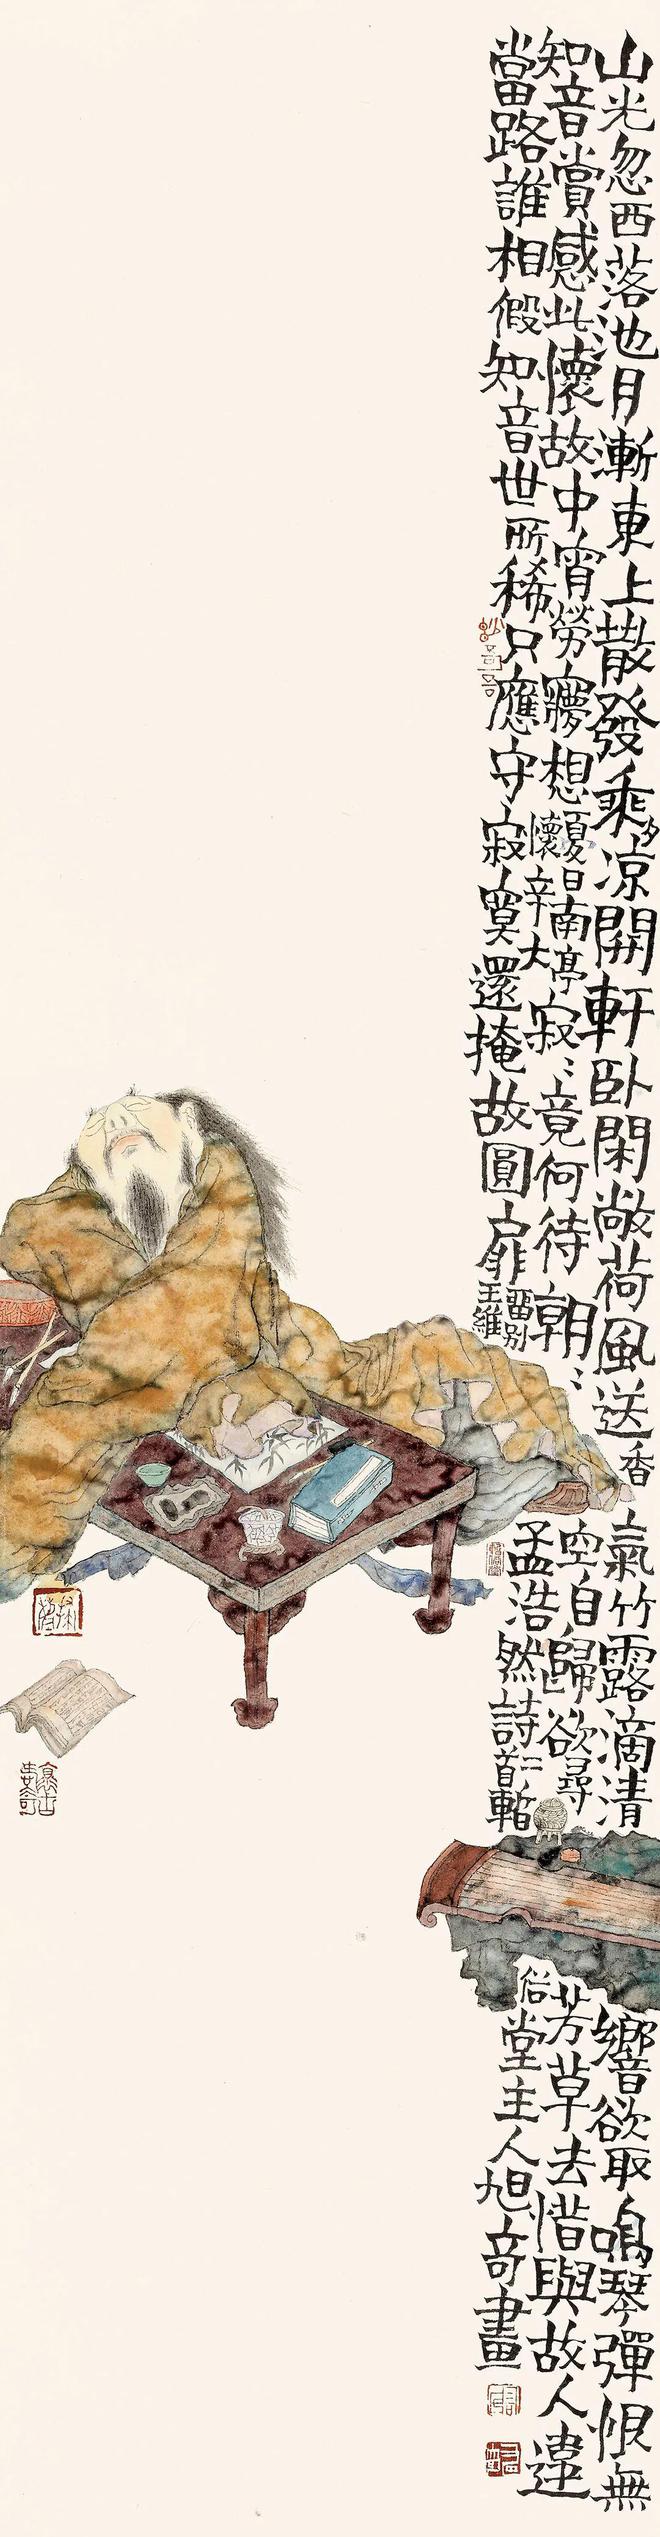 山光忽西落池月漸東上散發乘夕凉開軒卧閑敞荷風送香氣竹露滴清響欲取鳴琴彈恨無
知音賞感此懷故中宵勞夢想
夏日南亭
懷辛大
寂〻竟何待朝〻空自歸欲尋芳草去惜與故人違
當路誰相假知音世所稀只應守寂寞還掩故圓扉
留别
王維
孟浩然詩二首
堂主人旭奇畫